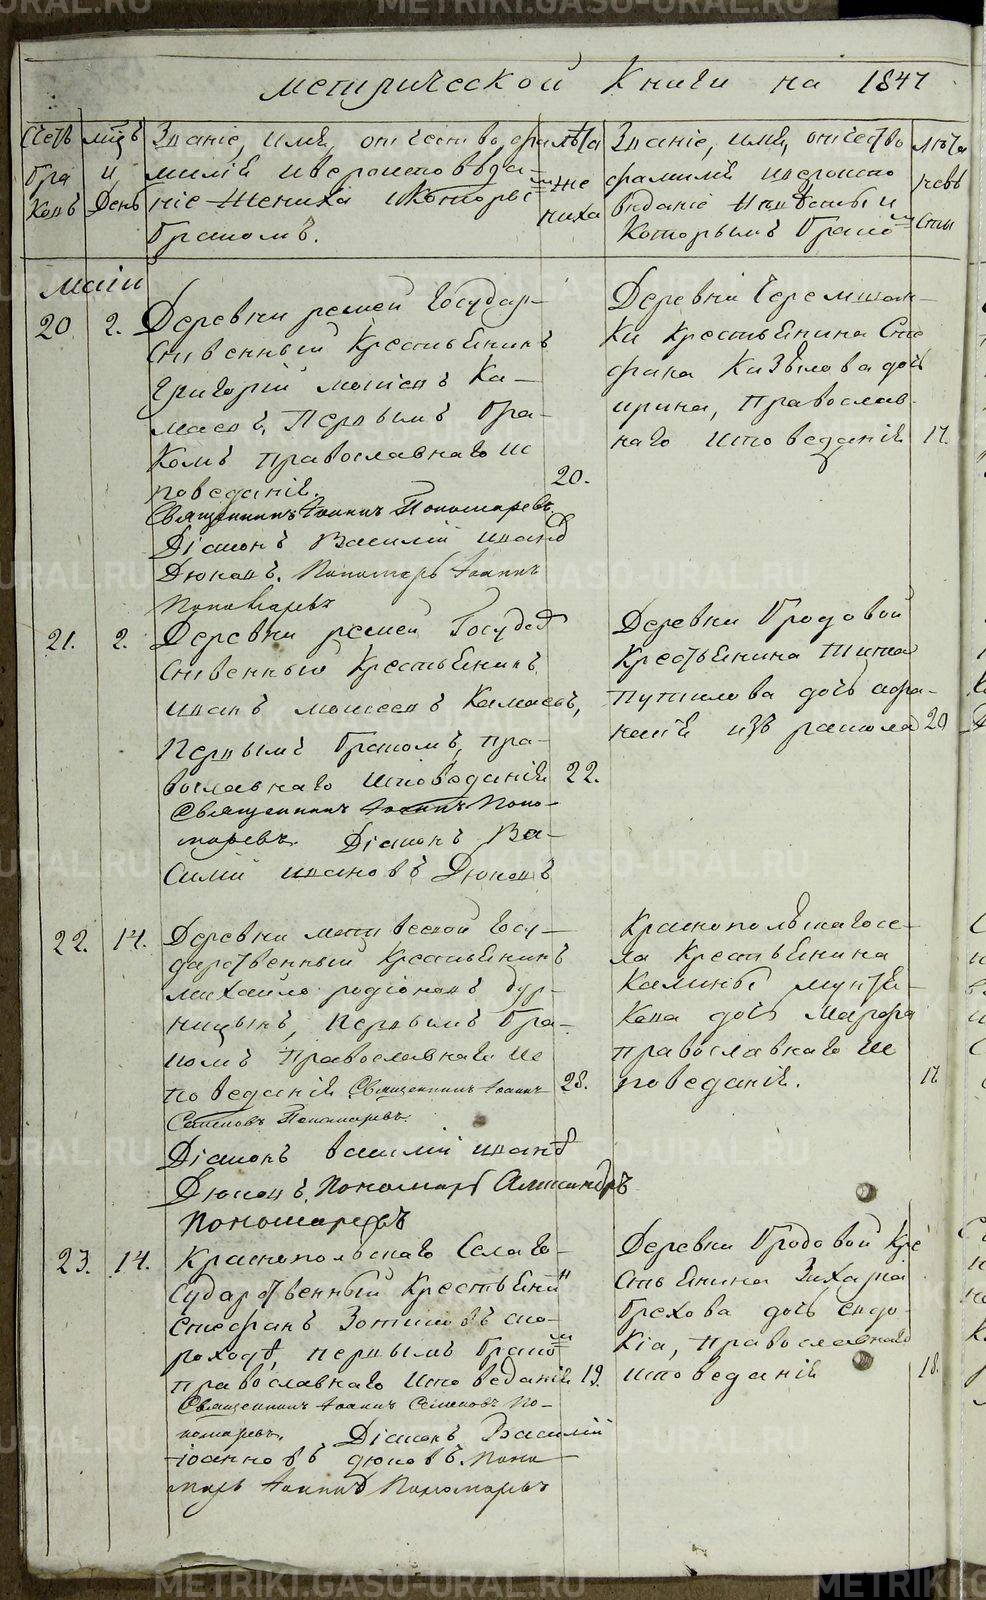 метрической Книги на 1847
Счетъ
бра
ковъ
мцъ
и
День
Званіе, имя, отчество, фа
милія и вероисповѣда-
ніе Жениха и Которымъ
бракомъ.
лѣта
же
ниха
Званіе, имя, отчество
фамилія и вероиспо
виданіе Невѣсты и
Которымъ брако=м
лѣта
невѣ
сты
маія
20
2.
Деревни решеи Государ-
ственный Крестьенинъ
Григорій мосиевъ Ка-
маевъ, Первымъ бра-
комъ православнаго ис
поведанія.
20.
Священникъ Іоаннъ Пономаревъ.
Діаконъ Василій иванов
Дюковъ. Пономарь Іоаннъ
Пономаревъ
Деревни Черемшан-
ки Крестьенина Сте
фана Казѣлова дочь
ирина, Православ-
наго исповеданія
17.
21.
2.
Деревни решеи Государ
ственный Крестьенинъ
иванъ мосеевъ Камаевъ,
Первымъ бракомъ, пра-
вославнаго исповеданія
22.
Священникъ Іоаннъ Поно-
маревъ. Діаконъ Ва-
силій ивановъ Дюковъ
Деревни бродовой
Крестьенина Тита
Путилова дочь афа-
насія изъ раскола
20
22.
14.
Деревни матвеевой Госу-
дарственный Крестьенинъ
михайло родіоновъ бур-
ницынъ, первымъ бра-
комъ Православнаго ис
поведанія Священникъ Іоаннъ
28.
Семеновъ Пономаревъ.
Діаконъ василій иванов
Дюковъ, Пономарь Александръ
Пономаревъ
Краснопольскаго се-
ла Крестьенина
Калины
дочь Марфа
православнаго ис
поведанія.
17
23.
14.
Краснопольскаго Села Го-
сударственный Крестьенин
Стефанъ Зотиковъ ско-
роходъ, первымъ брако=м
православнаго исповеданія
19.
Священникъ Іоаннъ Семеновъ По-
номаревъ, Діаконъ Василій
іоанновъ дюковъ. Поно
марь Іоаннъ Пономаревъ
Деревни бродовой Кре
стьенина Захара
Грехова дочь евдо-
кіа, православнаго
исповеданія
18.